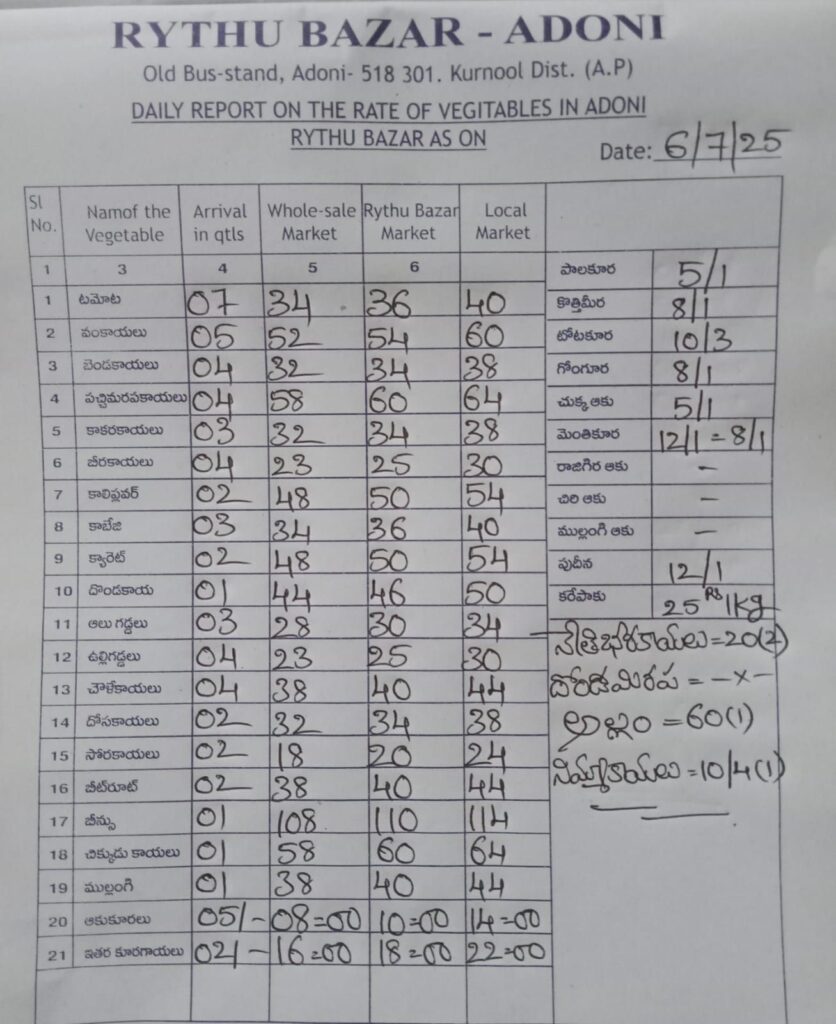 RYTHU BAZAR - ADONI
Old Bus-stand, Adoni- 518 301. Kurnool Dist. (A.P)
DAILY REPORT ON THE RATE OF VEGITABLES IN ADONI
RYTHU BAZAR AS ON
Date: 6/7/25
Sl No. Namof the Vegetable Arrival in qtls Whole-sale Market Rythu Bazar Market Local Market
1 3 4 5 6
1 టమోట 07 34 36 40
2 వంకాయలు 05 52 54 60
3 బెండకాయలు 04 32 34 38
4 పచ్చిమిరపకాయలు 04 58 60 64
5 కాకరకాయలు 03 32 34 38
6 బీరకాయలు 04 23 25 30
7 కాలిఫ్లవర్ 02 48 50 54
8 కాబేజి 03 34 36 40
9 క్యారెట్ 02 48 50 54
10 దొండకాయ 01 44 46 50
11 ఆలు గడ్డలు 03 28 30 34
12 ఉల్లిగడ్డలు 04 23 25 30
13 చౌళేకాయలు 04 38 40 44
14 దోసకాయలు 02 32 34 38
15 సోరకాయలు 02 18 20 24
16 బీట్‌రూట్ 02 38 40 44
17 బీన్సు 01 108 110 114
18 చిక్కుడు కాయలు 01 58 60 64
19 ముల్లంగి 01 38 40 44
20 ఆకుకూరలు 05/- 08=00 10=00 14=00
21 ఇతర కూరగాయలు 02/- 16=00 18=00 22=00
పాలకూర 5/1
కొత్తిమీర 8/1
టోటకూర 10/3
గోంగూర 8/1
చుక్క ఆకు 5/1
మెంతికూర 12/1 = 8/1
రాజిగిర ఆకు -
చిరి ఆకు -
ముల్లంగి ఆకు -
పుదీన 12/1
కరేపాకు 25 Rs 1Kg
నేతిబీరకాయలు = 20(2)
దోరడమిరప = -x-
అల్లం = 60(1)
నిమ్మకాయలు = 10/4(1)